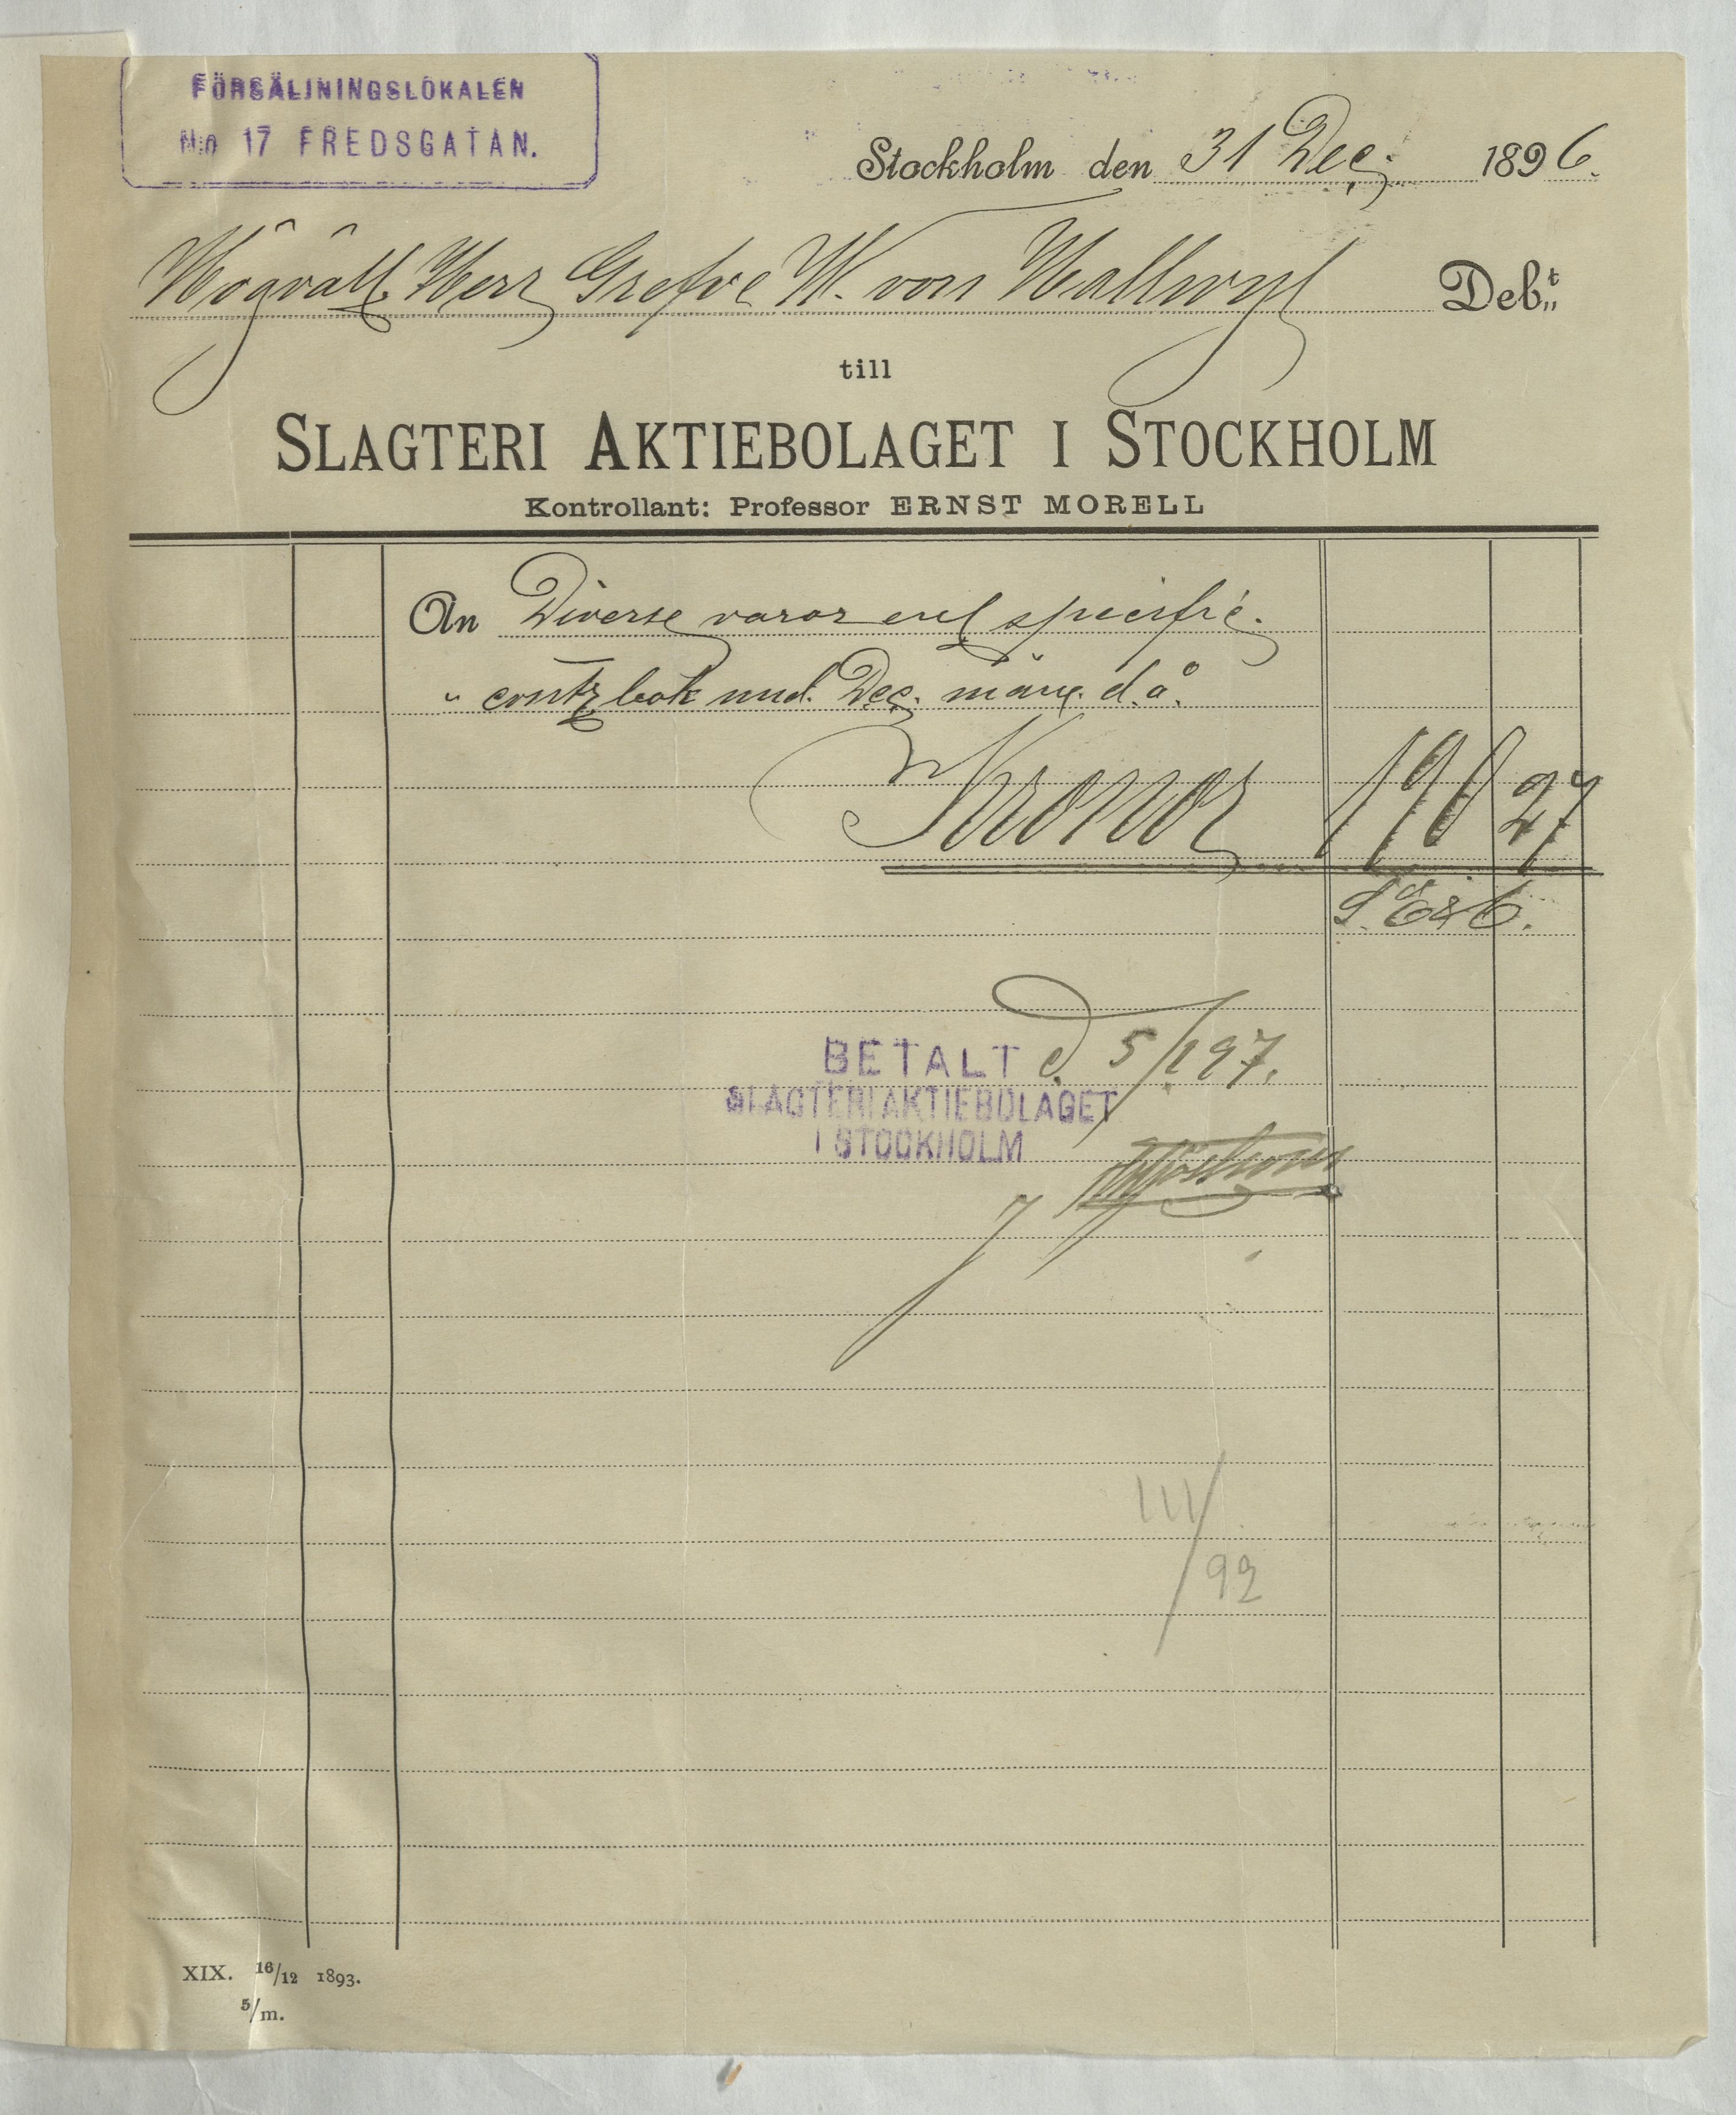 FÖRSÄLJNINGSLOKALEN
N:o 17 FREDSGATAN.
Stockholm den 31 Dec. 1896.
Högväll. Herr Grefve W. von Hallwyl Deb:t
till
SLAGTERI AKTIEBOLAGET I STOCKHOLM
Kontrollant: Professor ERNST MORELL
An Diverse varor enl specifié.
" contrabok und. Dec. mån. d.å.
Kronor 190 27
S. E & O.
BETALT d. 5/1 97.
SLAGTERI AKTIEBOLAGET
I STOCKHOLM
111/92
XIX. 16/12 1893.
5/m.